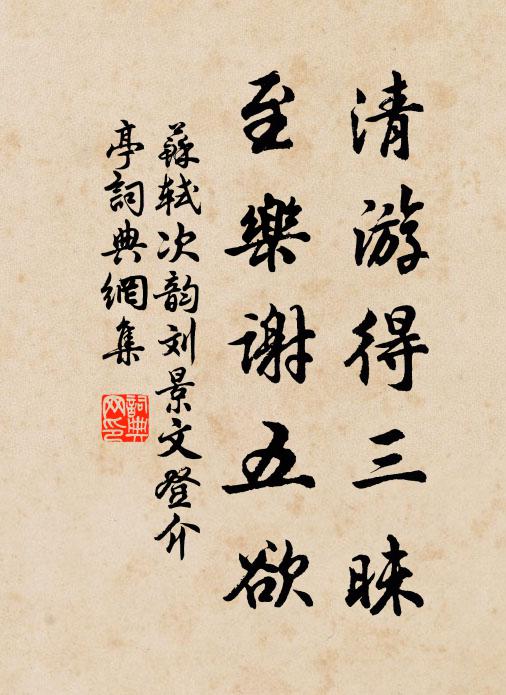 清游得三昧
至樂謝五欲
蘇轼次韵刘景文登介
亭詞典網集
詞典
网印